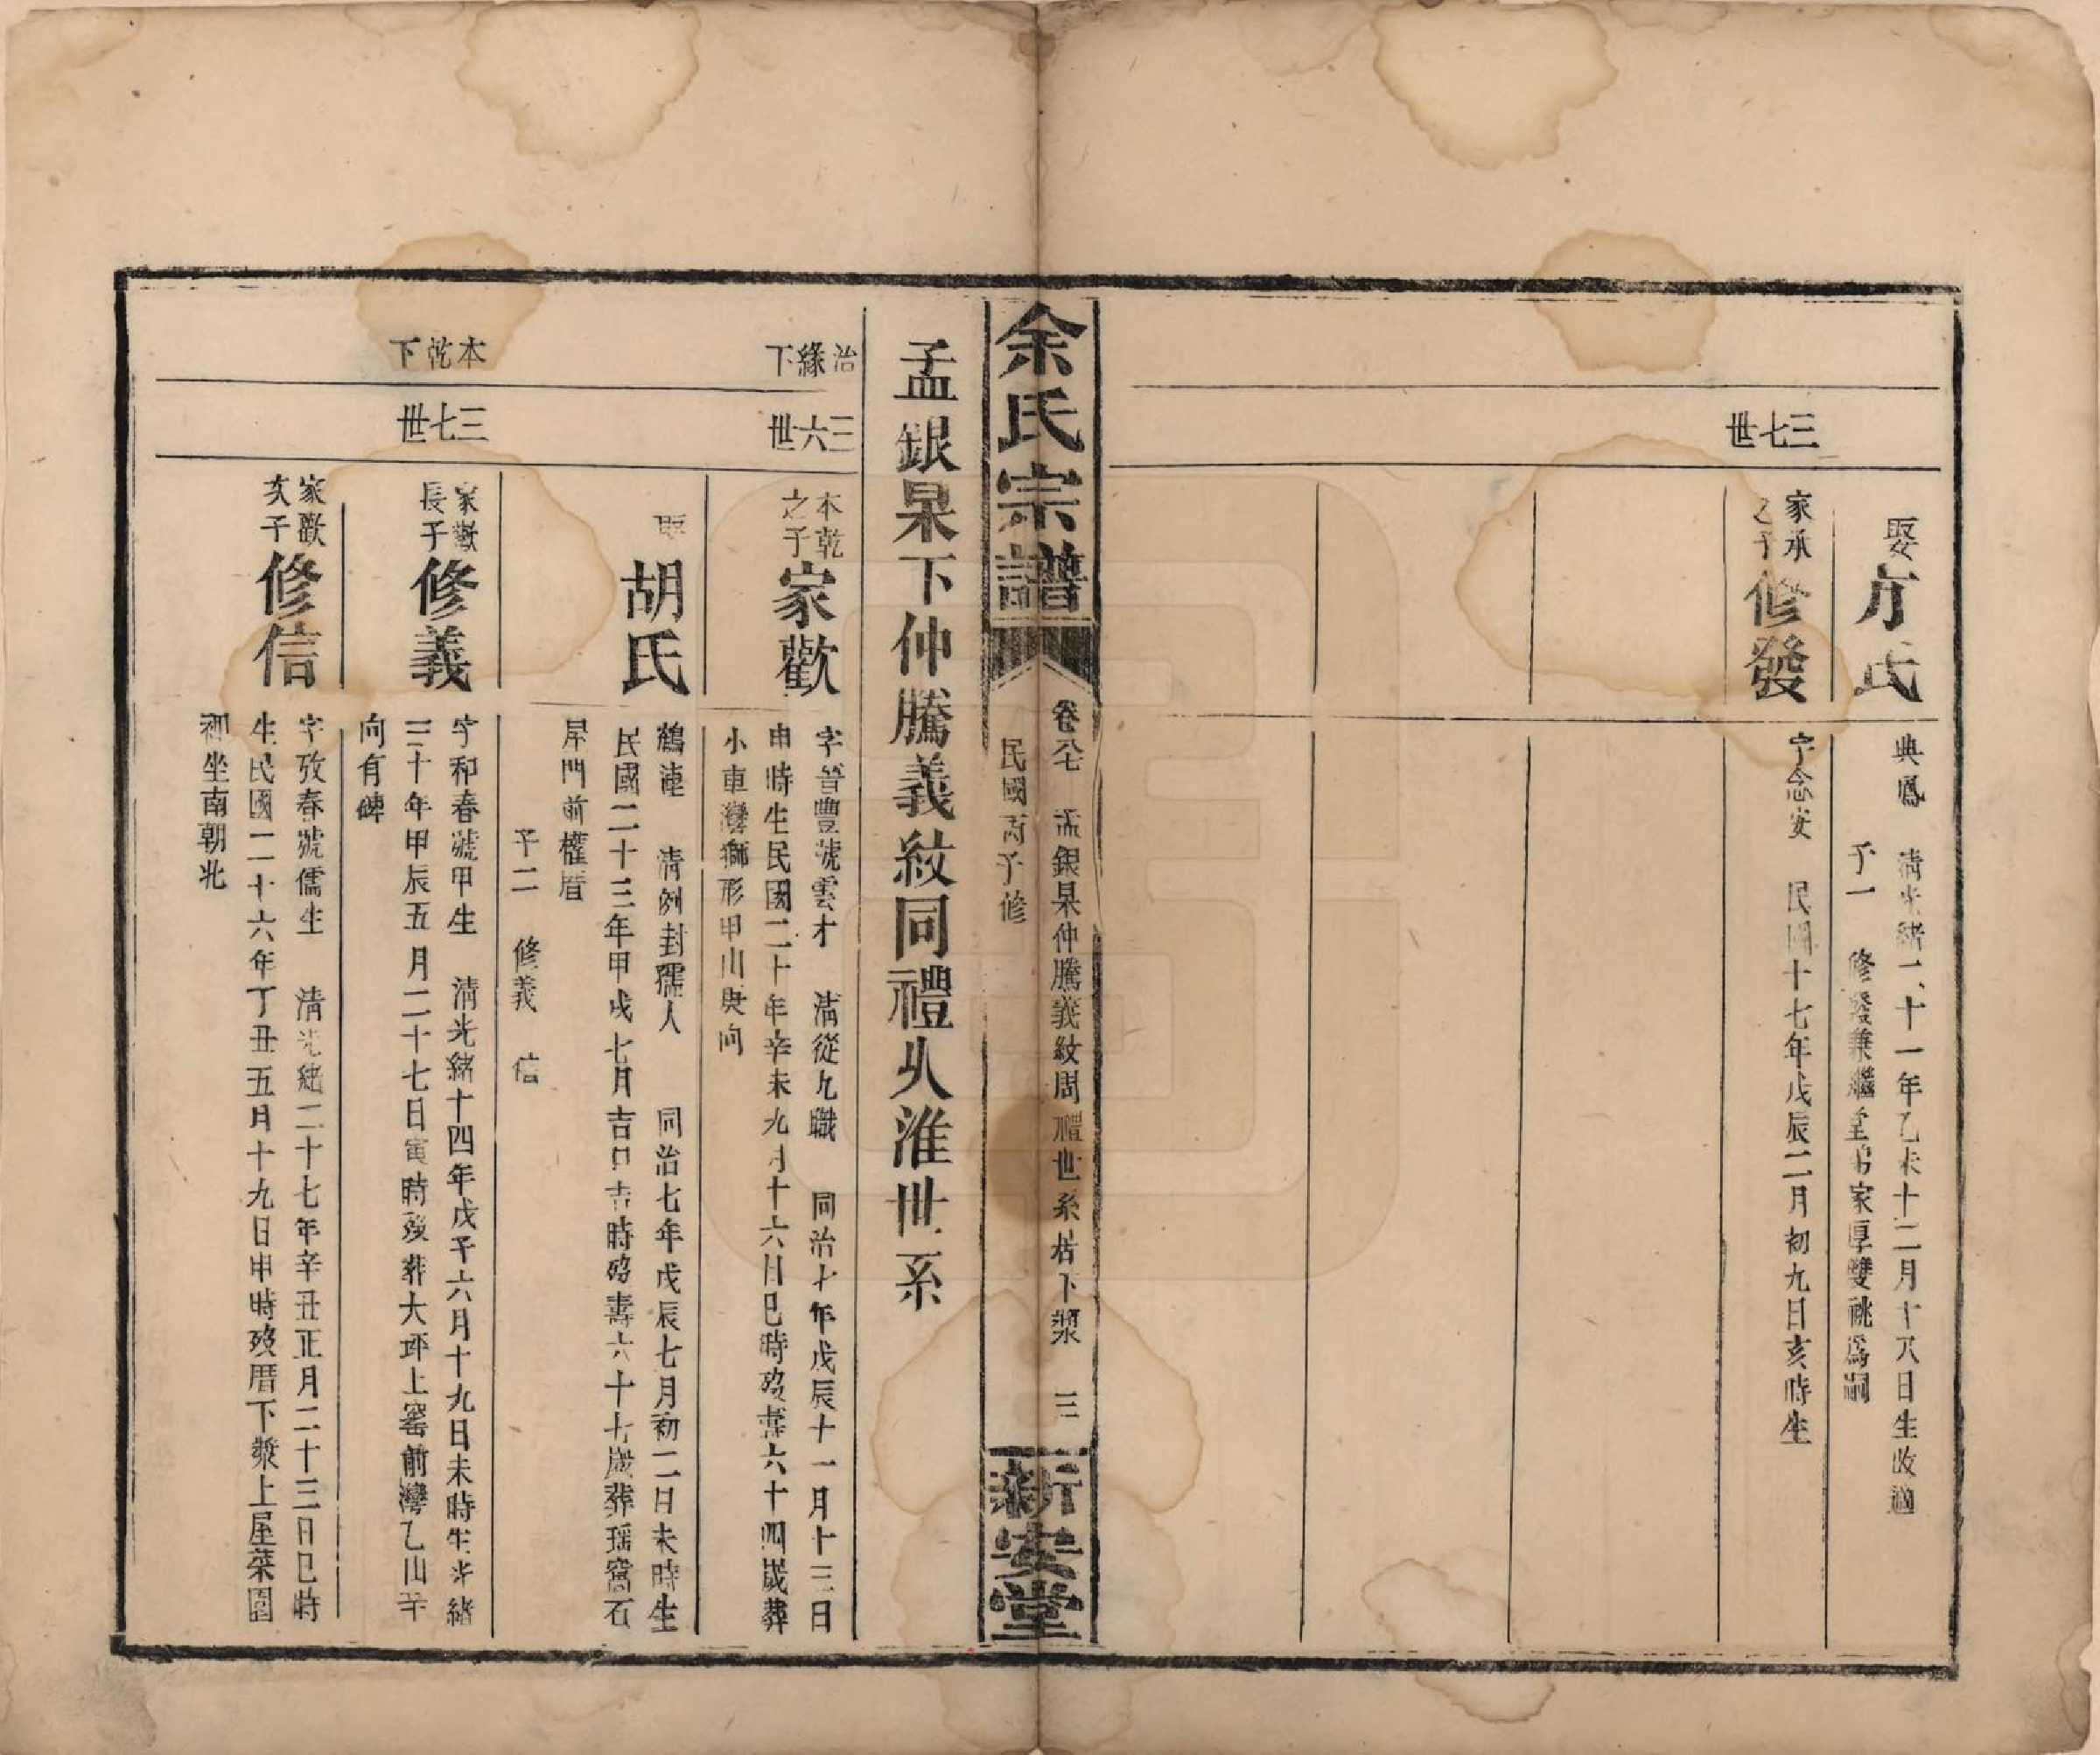 三七世
娶
氏
典鳳 清光緒二十一年乙未十二月十八日生改適
子一 修發兼繼堂弟家厚雙祧爲嗣
家承
之子
修發
字念安 民國十七年戊辰二月初九日亥時生
余氏宗譜
卷 孟銀杲仲騰義紋周禮世系桔下漿 三
民國丙子修
新安堂
孟銀杲下仲騰義紋同禮火淮世系
治緣下
三六世
本乾
之子
家歡
字普豐號雲才 清從九職 同治七年戊辰十一月十三日
申時生民國二十年辛未九月十六日巳時歿壽六十四歲葬
小車灣獅形甲山庚向
娶
胡氏
鶴蓮 清例封孺人 同治七年戊辰七月初二日未時生
民國二十三年甲戌七月吉日吉時歿壽六十七歲葬瑶窩石
屏門前權厝
子二 修義 信
本乾下
三七世
家歡
長子
修義
字和春號甲生 清光緒十四年戊子六月十九日未時生光緒
三十年甲辰五月二十七日寅時歿葬大坪上窰前灣乙山辛
向有碑
家歡
次子
修信
字孜春號儒生 清光緒二十七年辛丑正月二十三日巳時
生民國二十六年丁丑五月十九日申時歿厝下漿上屋菜園
裡坐南朝北